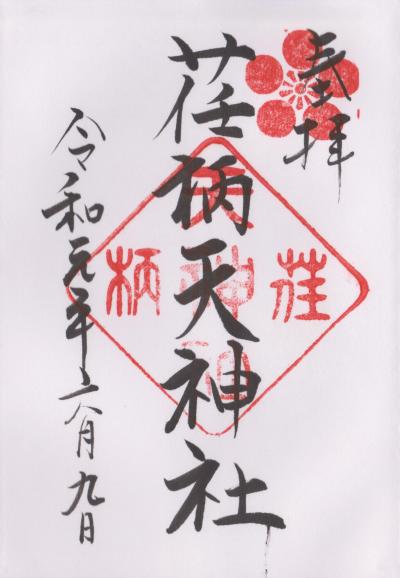 奉拝
荏柄天神社
令和元年六月九日
荏
天神社
柄